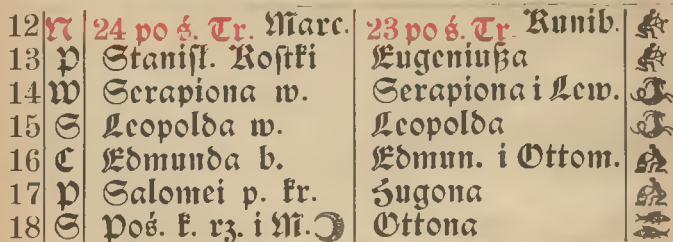 12 N 24 po ś. Tr. Marc. 23 po ś. Tr. Kunib.
13 P Stanisł. Kostki Eugeniusza
14 W Serapiona w. Serapiona i Lew.
15 S Leopolda w. Leopolda
16 C Edmunda b. Edmun. i Ottom.
17 P Salomei p. kr. Hugona
18 S Poś. k. rz. i M. Ottona